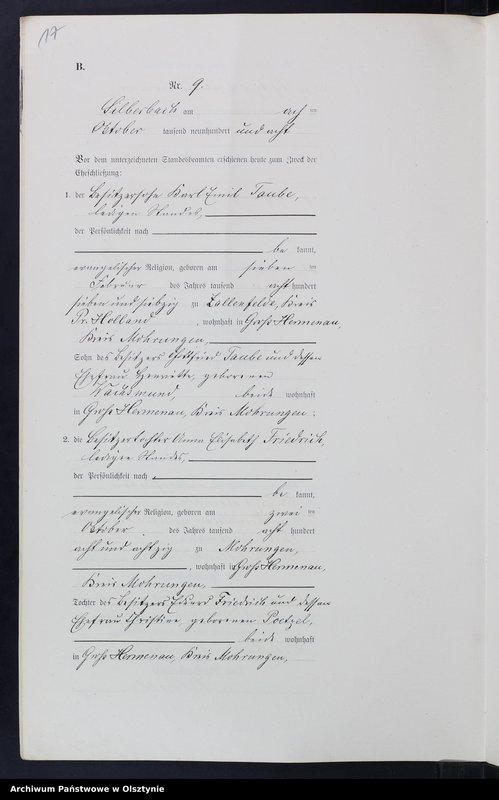 17
B.
Nr. 9.
Silberbach am acht ten
Oktober tausend neunhundert und acht
Vor dem unterzeichneten Standesbeamten erschienen heute zum Zweck der
Eheschließung:
1. der Besitzersohn Karl Emil Taube,
ledigen Standes,
der Persönlichkeit nach
be kannt,
evangelischer Religion, geboren am sieben ten
Februar des Jahres tausend acht hundert
sieben und siebzig zu Kreis
Pr. Holland, wohnhaft in Groß Hermenau,
Kreis Mohrungen,
Sohn des Besitzers Gottfried Taube und dessen
Ehefrau Henriette, geborenen
beide wohnhaft
in Groß Hermenau, Kreis Mohrungen;
2. die Besitzertochter Anna Elisabeth Friedrich,
ledigen Standes,
der Persönlichkeit nach
be kannt,
evangelischer Religion, geboren am zwei ten
Oktober des Jahres tausend acht hundert
acht und achtzig zu Mohrungen,
, wohnhaft in Groß Hermenau,
Kreis Mohrungen,
Tochter des Besitzers Eduard Friedrich und dessen
Ehefrau Christine, geborenen Poetzel,
beide wohnhaft
in Groß Hermenau, Kreis Mohrungen,
Archiwum Państwowe w Olsztynie